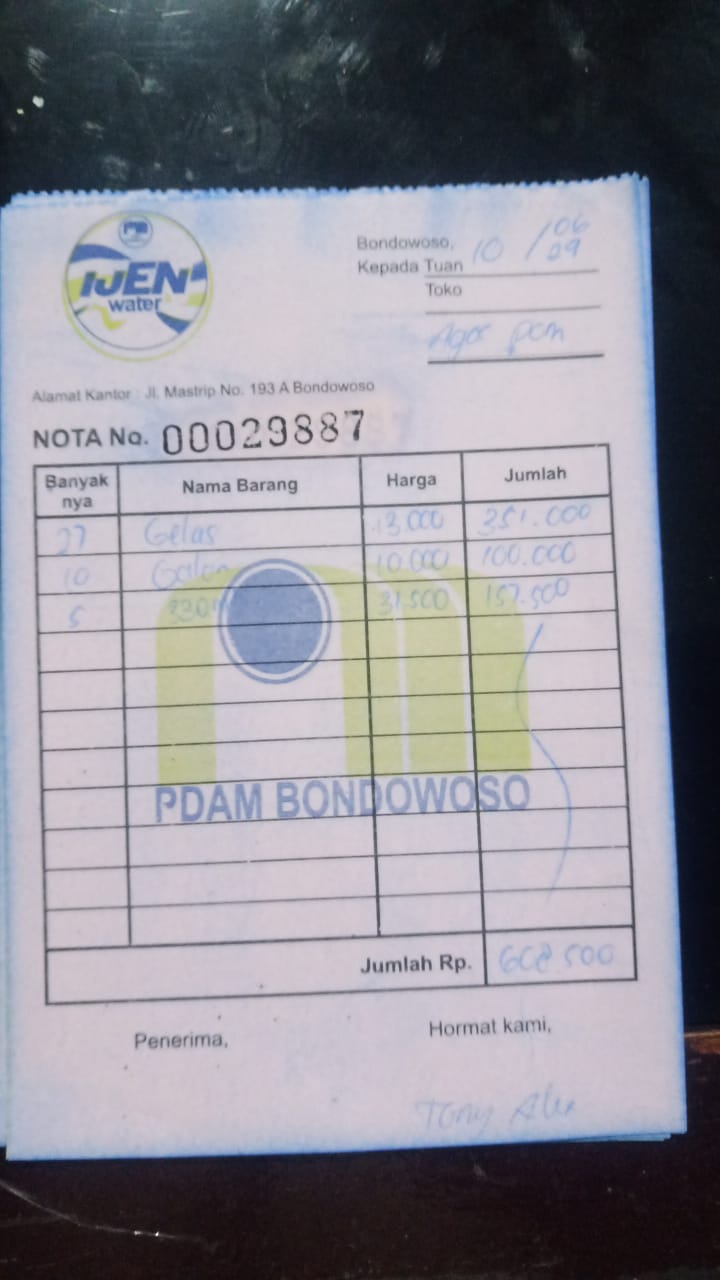 IJEN
water
Bondowoso, 10 / 06
Kepada Tuan
Toko
pcm
Alamat Kantor : Jl. Mastrip No. 193 A Bondowoso
NOTA No. 00029887
Banyak nya Nama Barang Harga Jumlah
27 Gelas 13.000 351.000
10 Galon 10.000 100.000
5 330m 31.500 157.500
PDAM BONDOWOSO
Jumlah Rp. 608.500
Penerima, Hormat kami,
Tony Alex